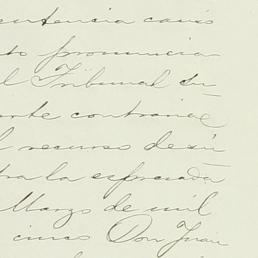 entencia caus
to pronuncia
l Tribunal Su-
arte contraria
l recurso de sú-
tra la espresada
Marzo de mil
cinco Don Juan